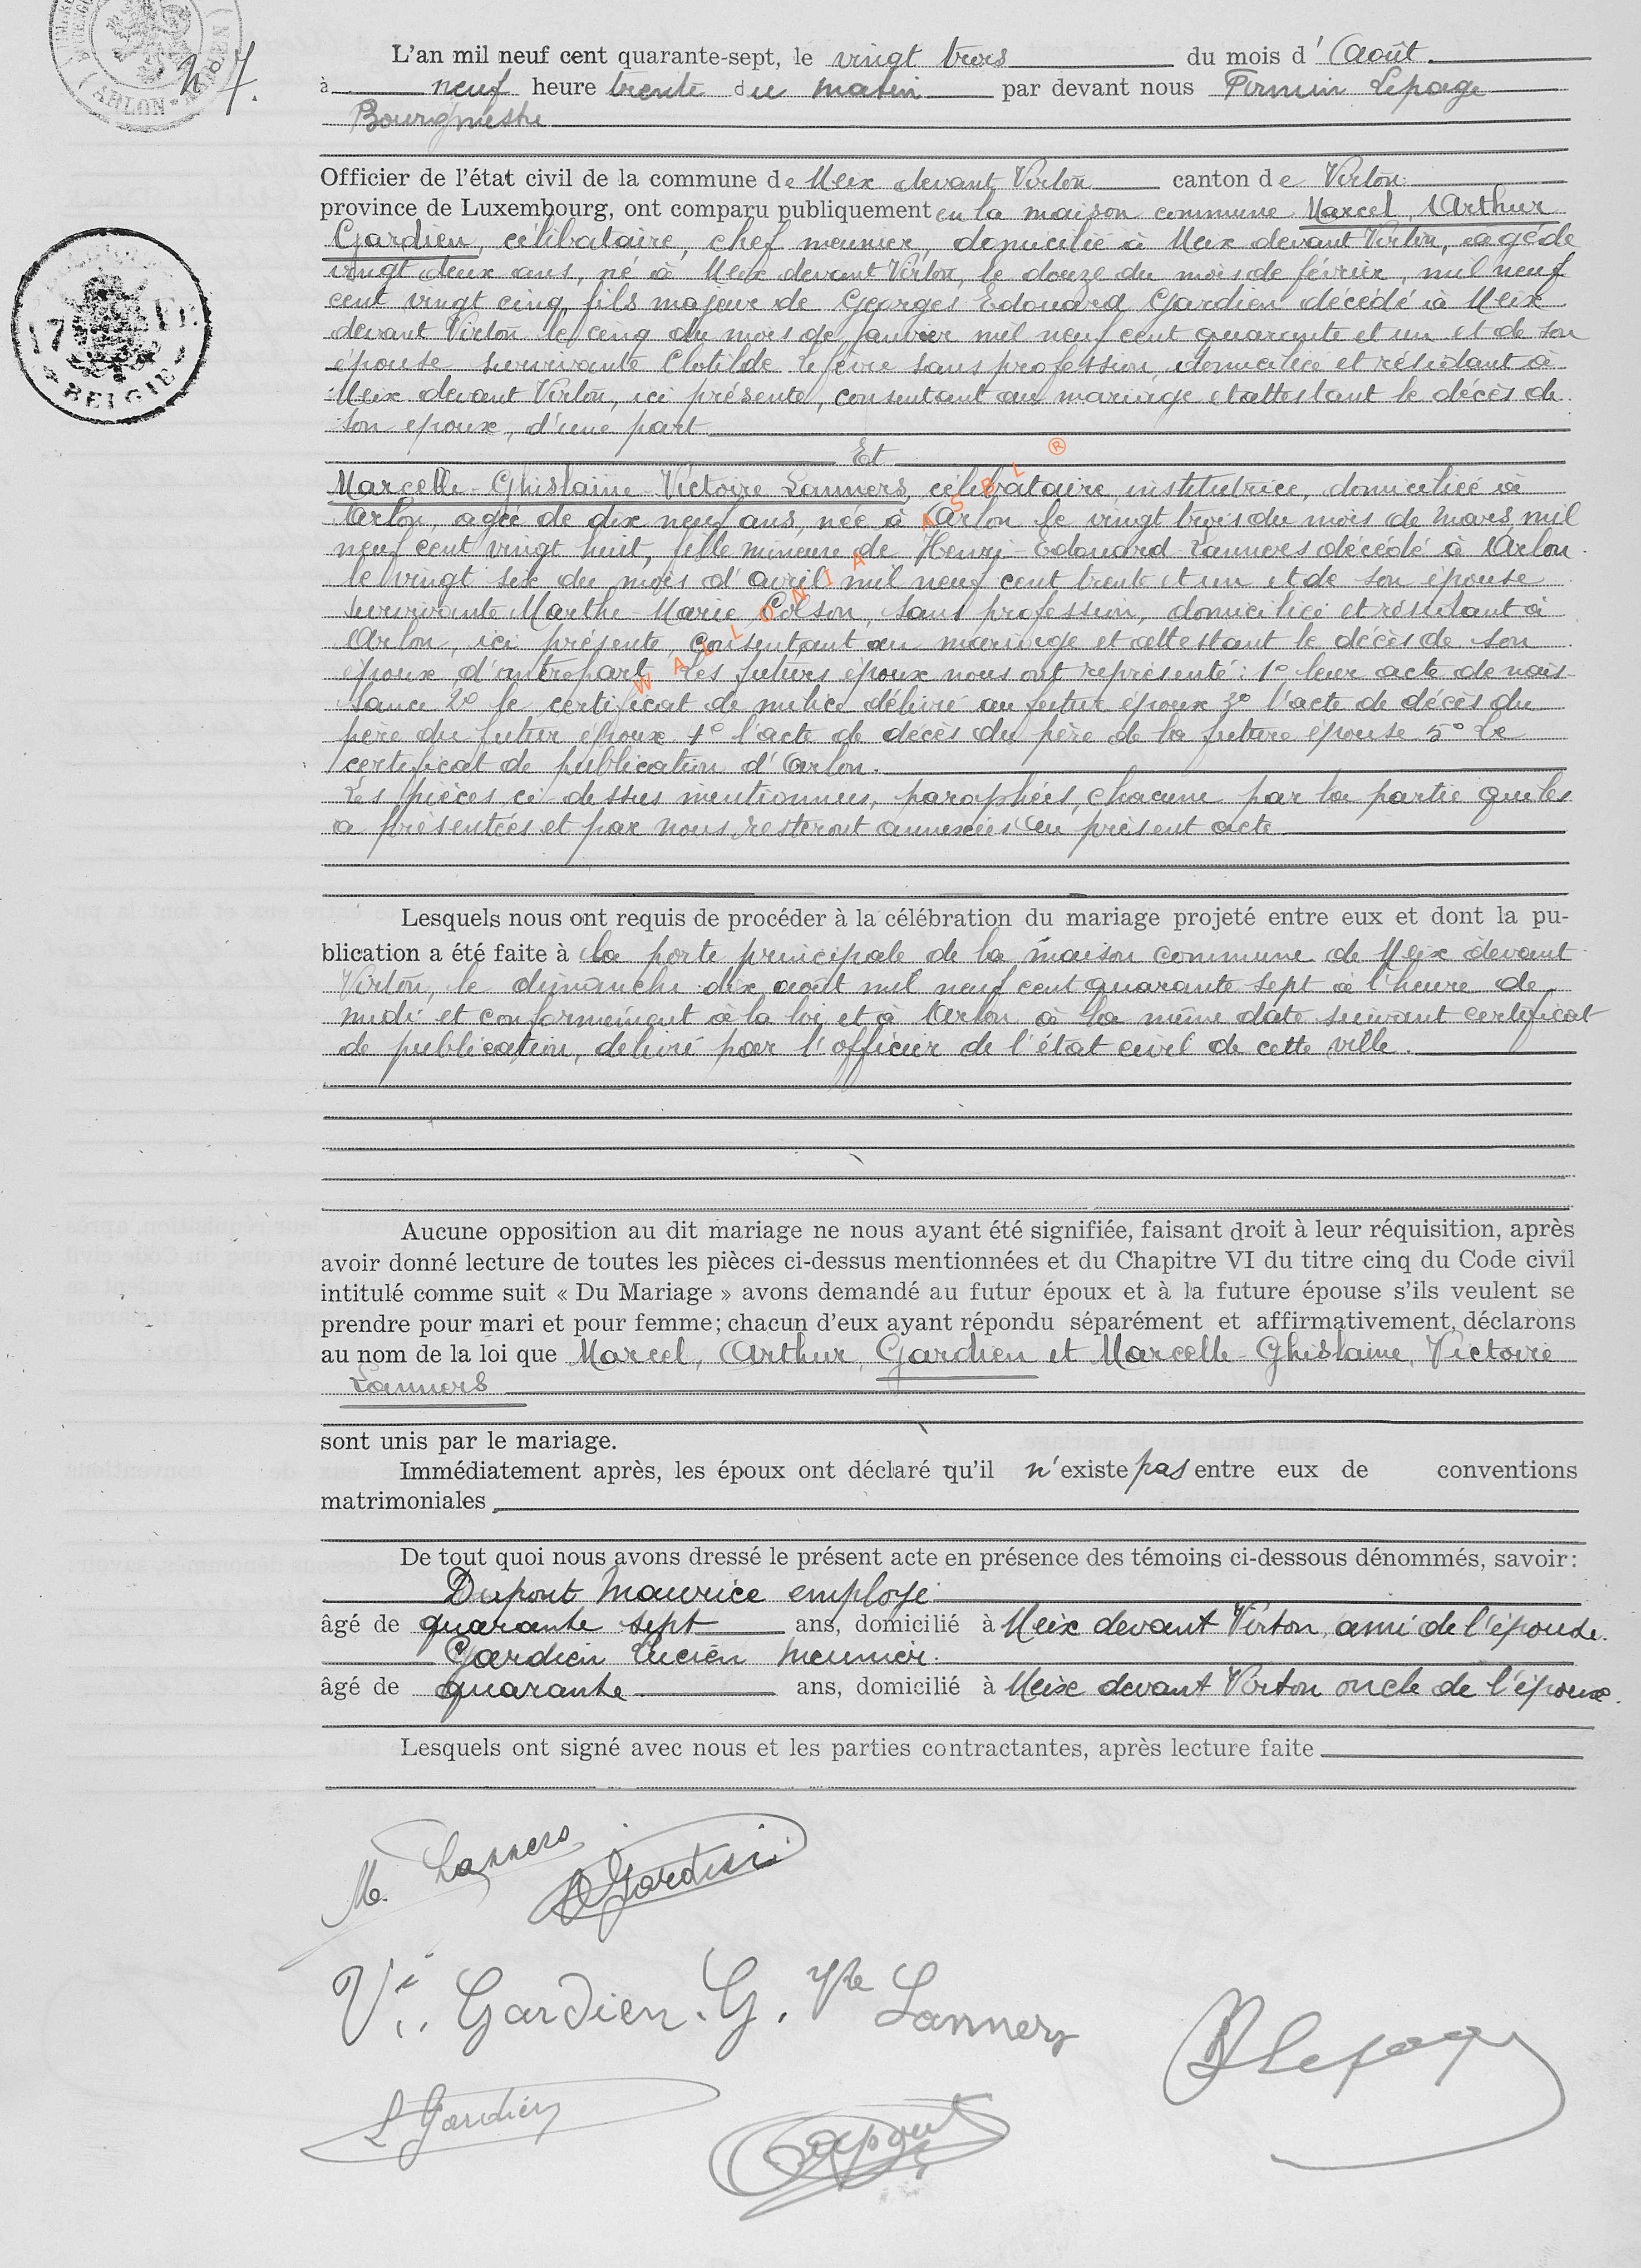 N 7.
L'an mil neuf cent quarante-sept, le vingt trois du mois d' Août.
à neuf heure trente du matin par devant nous Firmin Lepage
Bourgmestre
Officier de l'état civil de la commune de Meix devant Virton canton de Virton
province de Luxembourg, ont comparu publiquement en la maison commune Marcel, Arthur
Gardien, célibataire, chef meunier, domicilié à Meix devant Virton, agé de
vingt deux ans, né à Meix devant Virton, le douze du mois de février, mil neuf
cent vingt cinq, fils majeur de Georges Edouard Gardien décédé à Meix
devant Virton le cinq du mois de janvier mil neuf cent quarante et un et de son
épouse survivante Clotilde Lefèvre sans profession, domiciliée et résidant à
Meix devant Virton, ici présente, consentant au mariage et attestant le décès de
son époux, d'une part
Et
Marcelle-Ghislaine Victoire Lanners, célibataire institutrice, domiciliée à
Arlon, agée de dix neuf ans, née à Arlon le vingt trois du mois de mars mil
neuf cent vingt huit, fille mineure de Henri-Edouard Lanners décédé à Arlon
le vingt six du mois d'avril mil neuf cent trente et un et de son épouse
survivante Marthe-Marie Colson, sans profession, domiciliée et résidant à
Arlon, ici présente, consentant au mariage et attestant le décès de son
époux d'autre part. Les futurs époux nous ont représenté: 1° leur acte de nais-
sance 2° le certificat de milice délivré au futur époux 3° l'acte de décès du
père du futur époux 4° l'acte de décès du père de la future épouse 5° Le
certificat de publication d'Arlon.
Les pièces ci dessus mentionnées, paraphées, chacune par la partie qui les
a présentées et par nous resteront annexées au présent acte
Lesquels nous ont requis de procéder à la célébration du mariage projeté entre eux et dont la pu-
blication a été faite à la porte principale de la maison commune de Meix devant
Virton, le dimanche dix août mil neuf cent quarante sept à l'heure de
midi et conformément à la loi et à Arlon à la même date suivant certificat
de publication, délivré par l'officier de l'état civil de cette ville.
Aucune opposition au dit mariage ne nous ayant été signifiée, faisant droit à leur réquisition, après
avoir donné lecture de toutes les pièces ci-dessus mentionnées et du Chapitre VI du titre cinq du Code civil
intitulé comme suit « Du Mariage » avons demandé au futur époux et à la future épouse s'ils veulent se
prendre pour mari et pour femme; chacun d'eux ayant répondu séparément et affirmativement, déclarons
au nom de la loi que Marcel, Arthur, Gardien et Marcelle-Ghislaine, Victoire
Lanners
sont unis par le mariage.
Immédiatement après, les époux ont déclaré qu'il n'existe pas entre eux de conventions
matrimoniales
De tout quoi nous avons dressé le présent acte en présence des témoins ci-dessous dénommés, savoir:
Dupont Maurice employé
âgé de quarante sept ans, domicilié à Meix devant Virton, ami de l'épouse.
Gardien Lucien Meunier.
âgé de quarante ans, domicilié à Meix devant Virton oncle de l'époux.
Lesquels ont signé avec nous et les parties contractantes, après lecture faite
M. Lanners
Gardien
Ve. Gardien. G. Ve Lanners
Lepage
L Gardien
Dupont
ARLON
BELGIE
WALLONIA ASBL ®